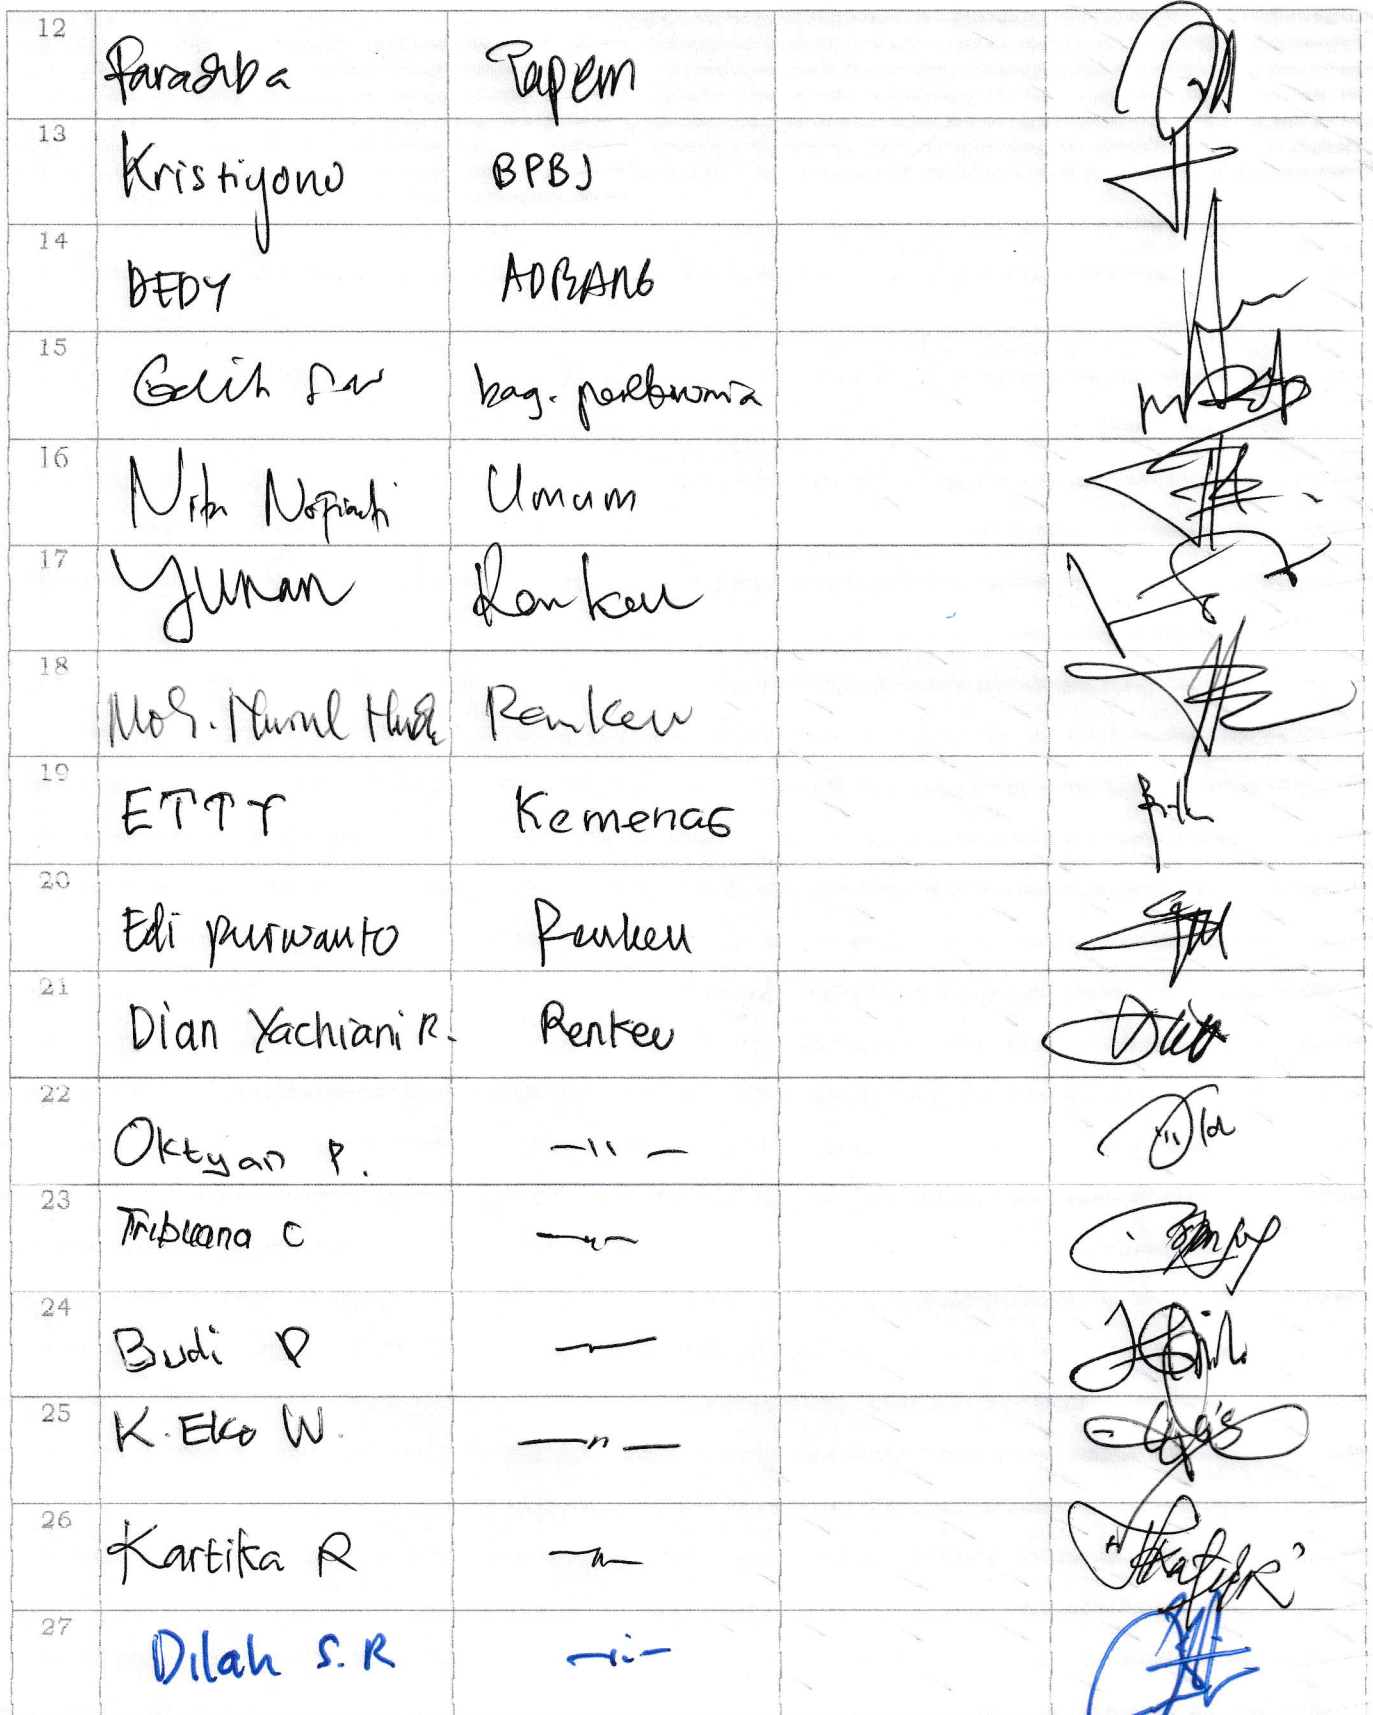 12 Paradiba Tapem
13 Kristiyono BPBJ
14 DEDY ADBANG
15 bag.
16 Nita Umum
17 Yunan Renkeu
18 Moh. Nurul Huda Renkeu
19 ETTY Kemenag
20 Edi purwanto Renkeu
21 Dian Yachiani R. Renkeu
22 Oktyan P. —\\ —
23 Tribuana C —"—
24 Budi P
25 K. Eko W. —"—
26 Kartika R —"—
27 Dilah S.R —"—